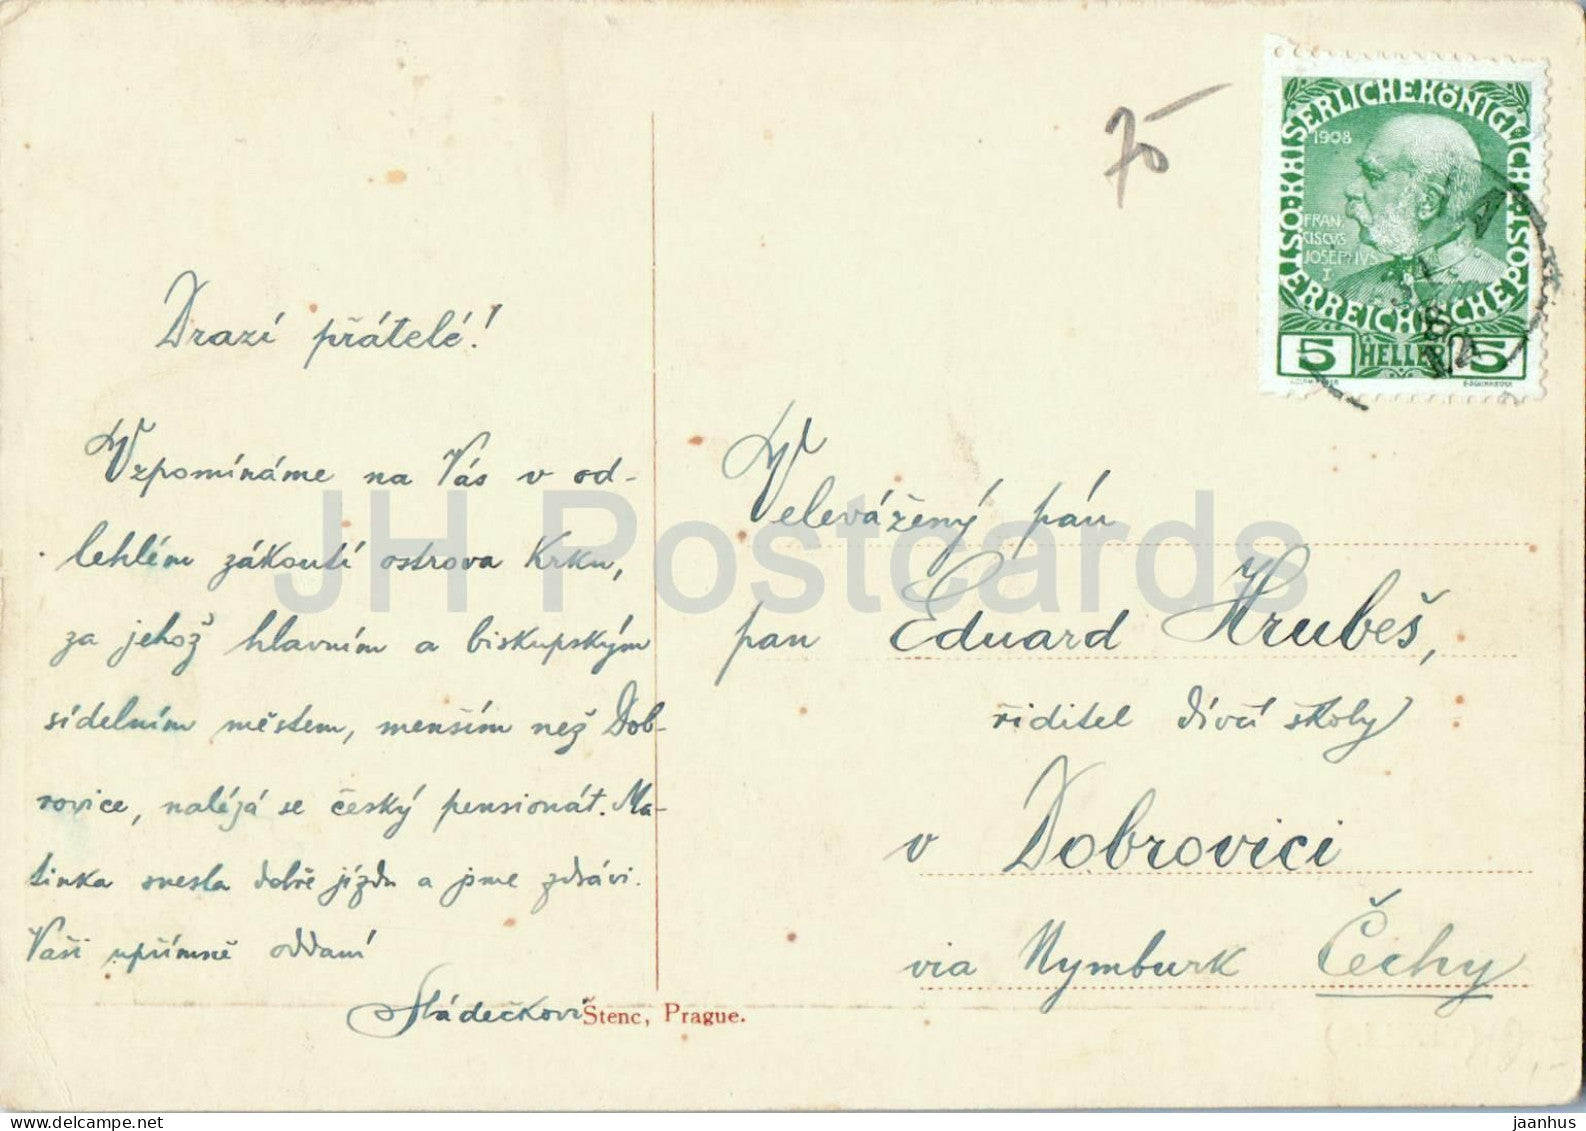 75
ÖSTERREICHISCHE POST
KAISERLICHE KÖNIGLICHE
1908
FRAN
CISCVS
JOSEPHVS
I
5 HELLER 5
31 8 12
Drazí přátelé!
Vzpomínáme na Vás v od-
lehlém zákoutí ostrova Krku,
za jehož hlavním a biskupským
sídelním městem, menším než Dob-
rovice, naléjá se český pensionát. Ma-
tinka snesla dobře jízdu a jsme zdrávi.
Vaši upřímně oddaní
Sládečkovi
Velevážený pán
pan Eduard Hrubeš,
řiditel dívčí školy
v Dobrovici
via Nymburk Čechy
Štenc, Prague.
JH Postcards
www.delcampe.net
jaanhus